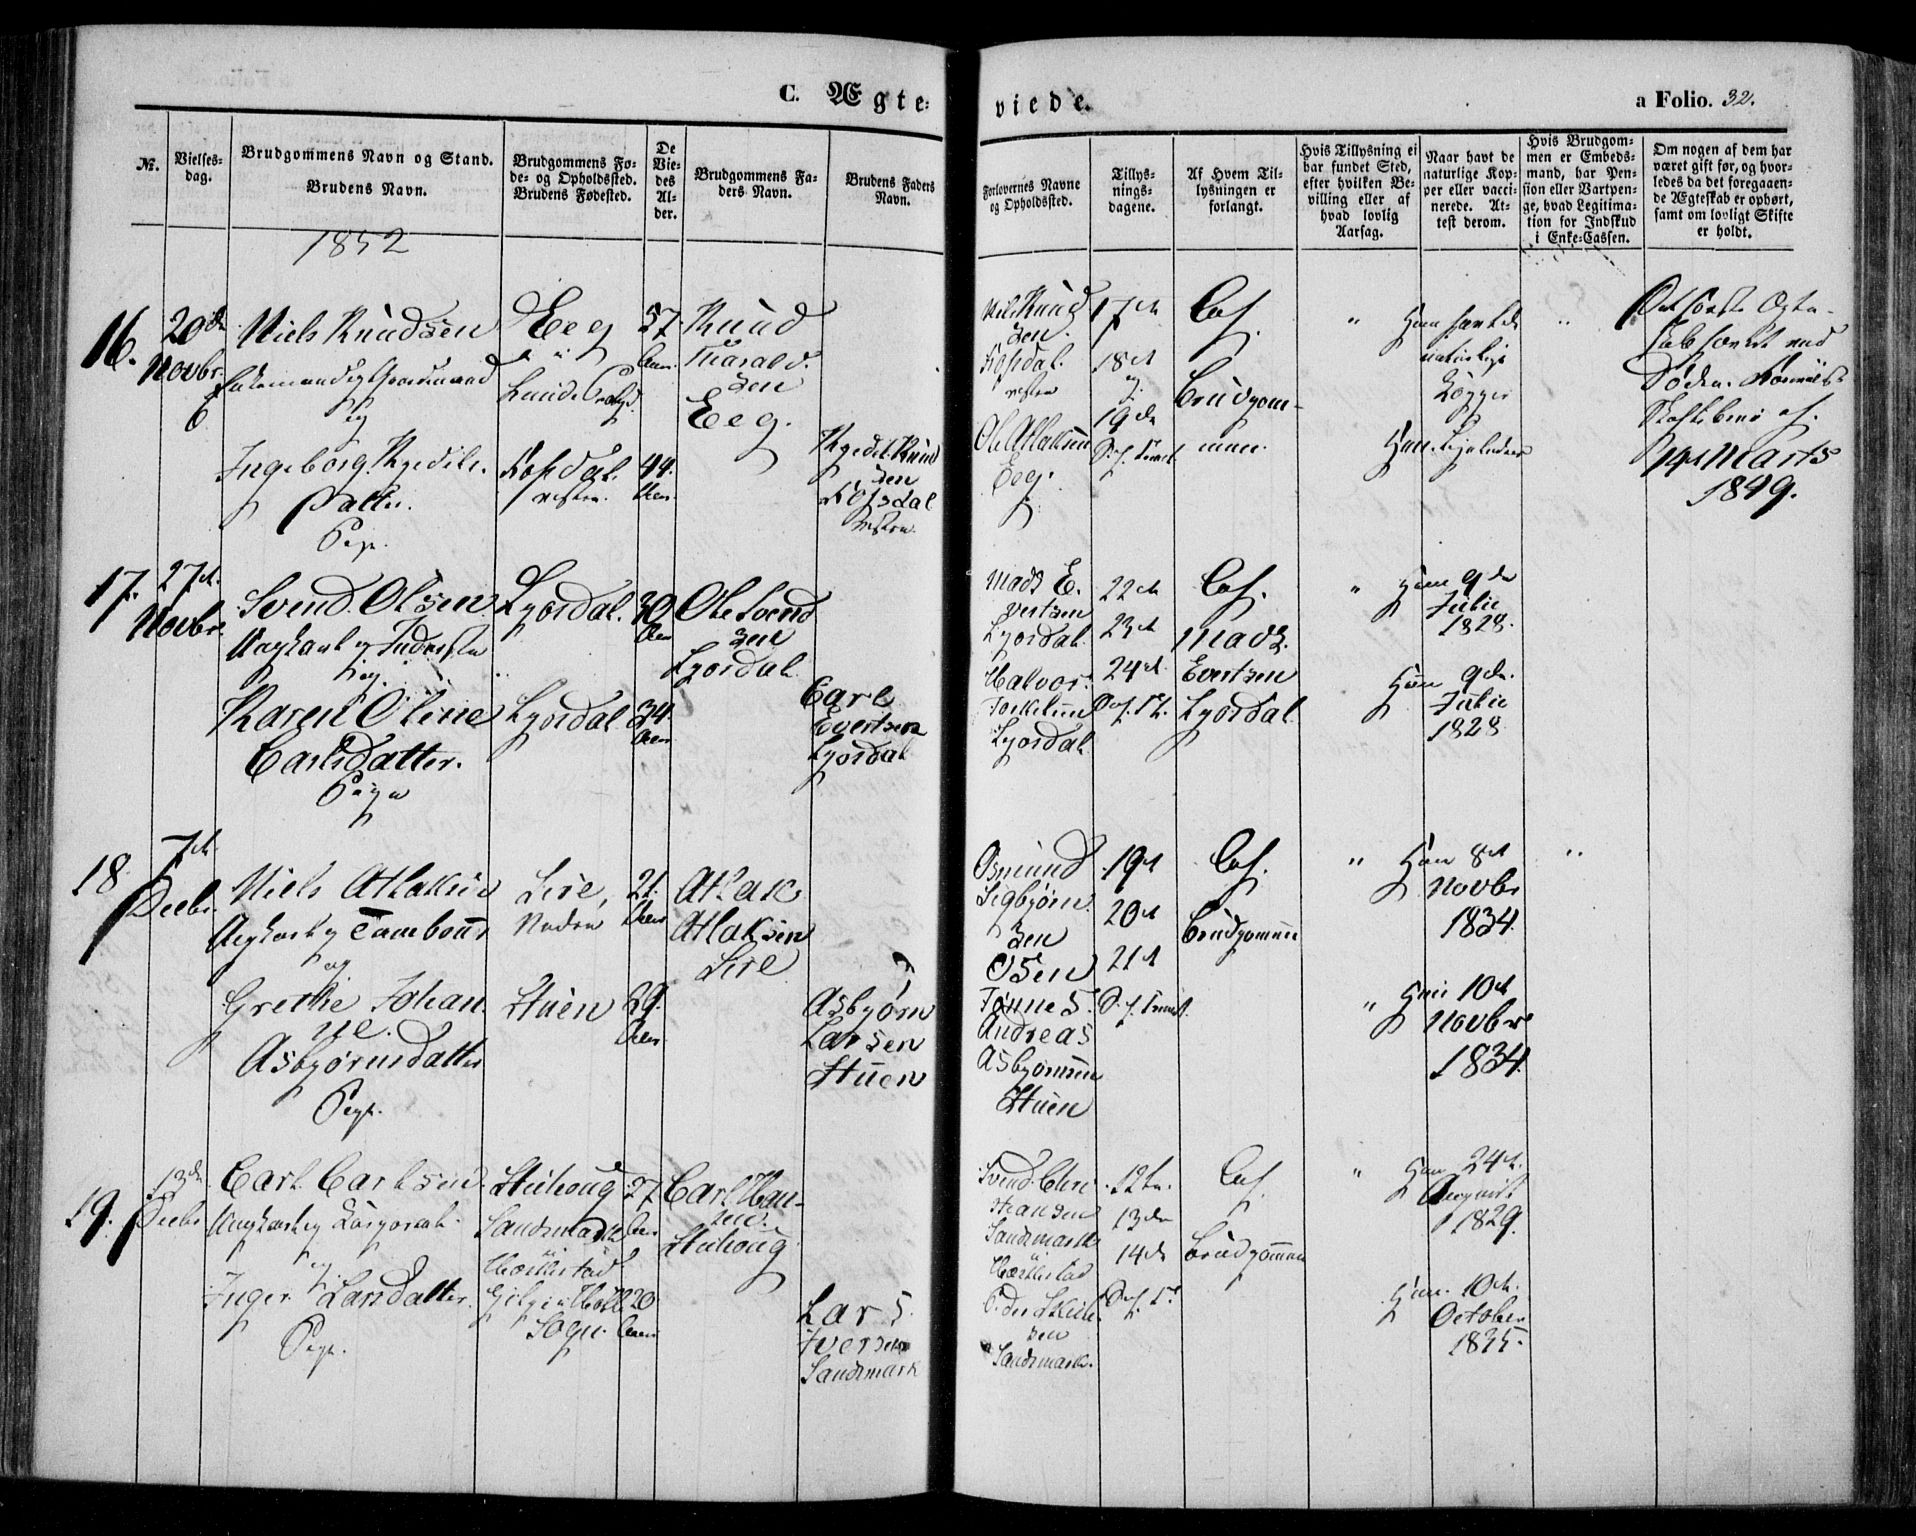 C. Ægte=
viede.
a Folio. 32.
№.
Vielses-
dag.
Brudgommens Navn og Stand.
Brudens Navn.
Brudgommens Fø-
de- og Opholdssted.
Brudens Fødested.
De
Vie-
des
Al-
der.
Brudgommens Fa-
ders Navn.
Brudens Faders
Navn.
Forlovernes Navne
og Opholdssted.
Tillys-
nings-
dagene.
Af Hvem Til-
lysningen er
forlangt.
Hvis Tillysning ei
har fundet Sted,
efter hvilken Be-
villing eller af
hvad lovlig
Aarsag.
Naar havt de
naturlige Kop-
per eller vacci-
nerede. At-
test derom.
Hvis Brudgom-
men er Embeds-
mand, har Pen-
sion eller Vartpen-
ge, hvad Legitima-
tion for Indskud
i Enke-Cassen.
Om nogen af dem har
været gift før, og hvor-
ledes da det foregaaen-
de Ægteskab er ophørt,
samt om lovligt Skifte
er holdt.
1852
16.
20de
Novbr.
Niels Knudsen
Enkemand og Gaardmand
og
Ingeborg Kjedils-
Datter.
Pige.
Eeg
Lunde
Rosdal
vestre.
57
Aar.
44.
Aar.
Knud
Tharald-
sen
Eeg.
Kjedel Knud
sen
Rosdal
vestre
Nils Knud
sen.
Rosdal
vestre
Ole Atlaksen
Eeg.
17de
18de
og
19de
S. f. Trinit.
Brudgom-
men.
"
Han havt de
naturlige
Kopper
Hun ligeledes
"
Det første Ægte-
skab hævet ved
Døden.
14de Marts
1849.
17.
27de
Novbr.
Svend Olsen
Ungkarl og Inderste
og
Karen Oline
Carlsdatter.
Pige
Lyordal.
Lyordal
30
Aar
34.
Aar
Ole Svend
sen
Lyordal
Carl
Evertsen
Lyordal
Mads E.
vertsen
Lyordal
Halvor
Torkelsen
Lyordal
22de
23de
24de
S. f. Tr.
Mads
Evertsen
Lyordal
"
Han 9de
Julie
1828.
Hun 9de
Julie
1828.
18
7de
Decbr.
Niels Atlaksen
Ungkarl og Tambour
og
Grethe Johan-
ne.
Asbjørnsdatter
Pige.
Lire,
Nedre
Stuen
21.
Aar
29.
Aar
Atlak
Atlaksen
Lire
Asbjørn
Larsen
Stuen
Osmund
Sigbjørn
sen
Osen
Tønnes
Andreas
Asbjørnsen
Stuen
19de
20de
21de
S. f. Trinit.
Brudgommen
"
Han 8de
Novbr
1834.
"
Hun 10de
Novbr
1834.
"
19.
13de
Decbr
Carl Carlsen
Ungkarl og
og
Inger Larsdatter.
Pige.
Stuhoug
Sandsmark
Sogn.
27
Aar
20
Aar
Carl Han-
sen.
Stuhoug
Lars
Iversen
Sandsmark
Svend Chri
stiansen
Sandsmark
Peder
sen
Sandsmark.
12te
13de
14de
S. f. Tr.
Brudgommen
"
Han 24de
August
1829.
Hun 10de
October
1835.